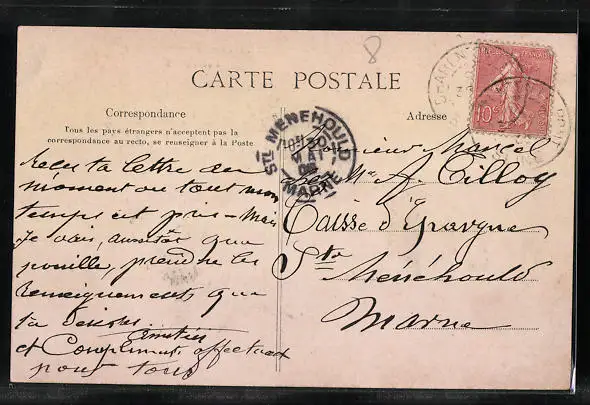 8
CARTE POSTALE
Correspondance
Tous les pays étrangers n'acceptent pas la
correspondance au recto, se renseigner à la Poste
Adresse
RÉPUBLIQUE FRANÇAISE
10c
STE MENEHOULD
MAI
MARNE
Reçu ta lettre au
moment où tout mon
temps est pris – Mais
Je vais, aussitôt que
possible, prendre les
Renseignements que
ta désires
Amitiés
et Compliments affectueux
pour tous
Monsieur Marcel
Mr A. Tilloy
Caisse d'Épargne
Ste Ménéhould
Marne